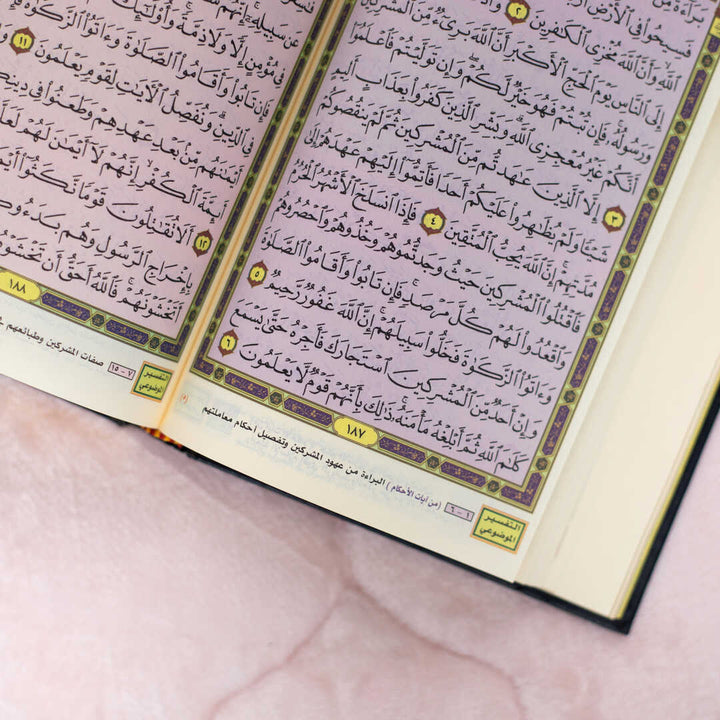 بَرَآءَةٌ مِّنَ
فَسِيحُوا۟ فِى ٱلْأَرْضِ
ٱللَّهِ وَأَنَّ ٱللَّهَ مُخْزِى ٱلْكَٰفِرِينَ ٢
إِلَى ٱلنَّاسِ يَوْمَ ٱلْحَجِّ ٱلْأَكْبَرِ أَنَّ ٱللَّهَ بَرِىٓءٌ مِّنَ ٱلْمُشْرِكِينَ
وَرَسُولُهُۥ فَإِن تُبْتُمْ فَهُوَ خَيْرٌ لَّكُمْ وَإِن تَوَلَّيْتُمْ فَٱعْلَمُوٓا۟
أَنَّكُمْ غَيْرُ مُعْجِزِى ٱللَّهِ وَبَشِّرِ ٱلَّذِينَ كَفَرُوا۟ بِعَذَابٍ أَلِيمٍ
٣ إِلَّا ٱلَّذِينَ عَٰهَدتُّم مِّنَ ٱلْمُشْرِكِينَ ثُمَّ لَمْ يَنقُصُوكُمْ
شَيْـًٔا وَلَمْ يُظَٰهِرُوا۟ عَلَيْكُمْ أَحَدًا فَأَتِمُّوٓا۟ إِلَيْهِمْ عَهْدَهُمْ إِلَىٰ
مُدَّتِهِمْ إِنَّ ٱللَّهَ يُحِبُّ ٱلْمُتَّقِينَ ٤ فَإِذَا ٱنسَلَخَ ٱلْأَشْهُرُ ٱلْحُرُمُ
فَٱقْتُلُوا۟ ٱلْمُشْرِكِينَ حَيْثُ وَجَدتُّمُوهُمْ وَخُذُوهُمْ وَٱحْصُرُوهُمْ
وَٱقْعُدُوا۟ لَهُمْ كُلَّ مَرْصَدٍ فَإِن تَابُوا۟ وَأَقَامُوا۟ ٱلصَّلَوٰةَ
وَءَاتَوُا۟ ٱلزَّكَوٰةَ فَخَلُّوا۟ سَبِيلَهُمْ إِنَّ ٱللَّهَ غَفُورٌ رَّحِيمٌ ٥
وَإِنْ أَحَدٌ مِّنَ ٱلْمُشْرِكِينَ ٱسْتَجَارَكَ فَأَجِرْهُ حَتَّىٰ يَسْمَعَ
كَلَٰمَ ٱللَّهِ ثُمَّ أَبْلِغْهُ مَأْمَنَهُۥ ذَٰلِكَ بِأَنَّهُمْ قَوْمٌ لَّا يَعْلَمُونَ ٦
١٨٧
التفسير الموضوعي
١ – ٦ (من آيات الأحكام) البراءة من عهود المشركين وتفصيل أحكام معاملتهم
عَن سَبِيلِهِۦٓ إِنَّهُمْ
فِى مُؤْمِنٍ إِلًّا وَلَا ذِمَّةً وَأُو۟لَٰٓئِكَ
فَإِن تَابُوا۟ وَأَقَامُوا۟ ٱلصَّلَوٰةَ وَءَاتَوُا۟ ٱلزَّكَوٰةَ
فِى ٱلدِّينِ وَنُفَصِّلُ ٱلْـَٔايَٰتِ لِقَوْمٍ يَعْلَمُونَ ١١
أَيْمَٰنَهُم مِّنۢ بَعْدِ عَهْدِهِمْ وَطَعَنُوا۟ فِى
أَئِمَّةَ ٱلْكُفْرِ إِنَّهُمْ لَآ أَيْمَٰنَ لَهُمْ
١٢ أَلَا تُقَٰتِلُونَ قَوْمًا نَّكَثُوٓا۟
بِإِخْرَاجِ ٱلرَّسُولِ وَهُم
أَتَخْشَوْنَهُمْ فَٱللَّهُ أَحَقُّ أَن تَخْشَوْهُ
١٨٨
التفسير الموضوعي
٧ – ١٥ صفات المشركين وطبائعهم